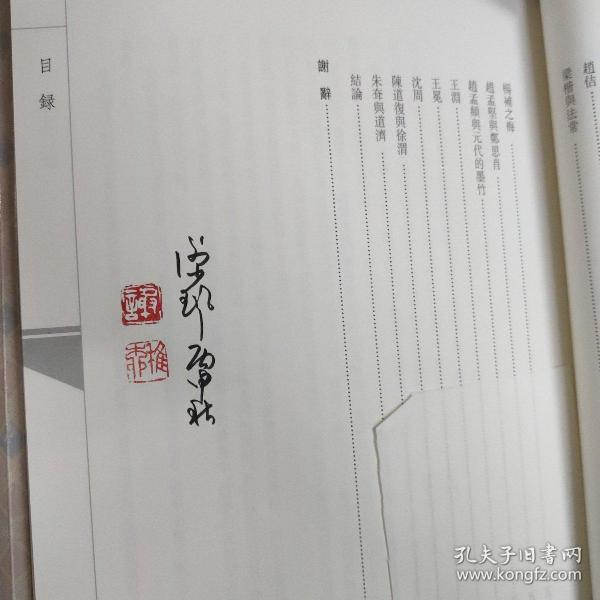 趙佶
梁楷與法常
楊補之梅
趙孟堅與鄭思肖
趙孟頫與元代的墨竹
王淵
王冕
沈周
陳道復與徐渭
朱耷與道濟
結論
謝辭
目録
孔夫子旧书网
www.kongfz.com